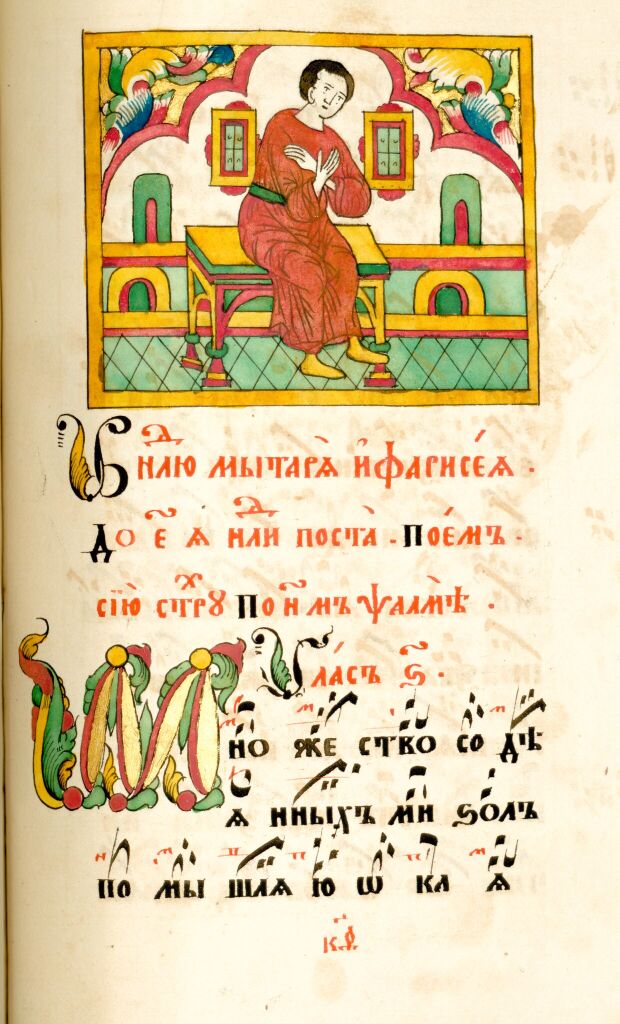 В н҃длю мытарѧ̀ и҆ фарисе́ѧ .
До е҃ ѧ нд҃ли поста̀ . Пое́мъ .
сїю̀ стрꙋⷯ По н҃мъ ѱалмѣ̀ .
Гла́съ ѕ҃ .
Мно же ство со дѣ
ѧ нныхъ ми ѕолъ
по мы шлѧѧ ю ѡ ка ѧ